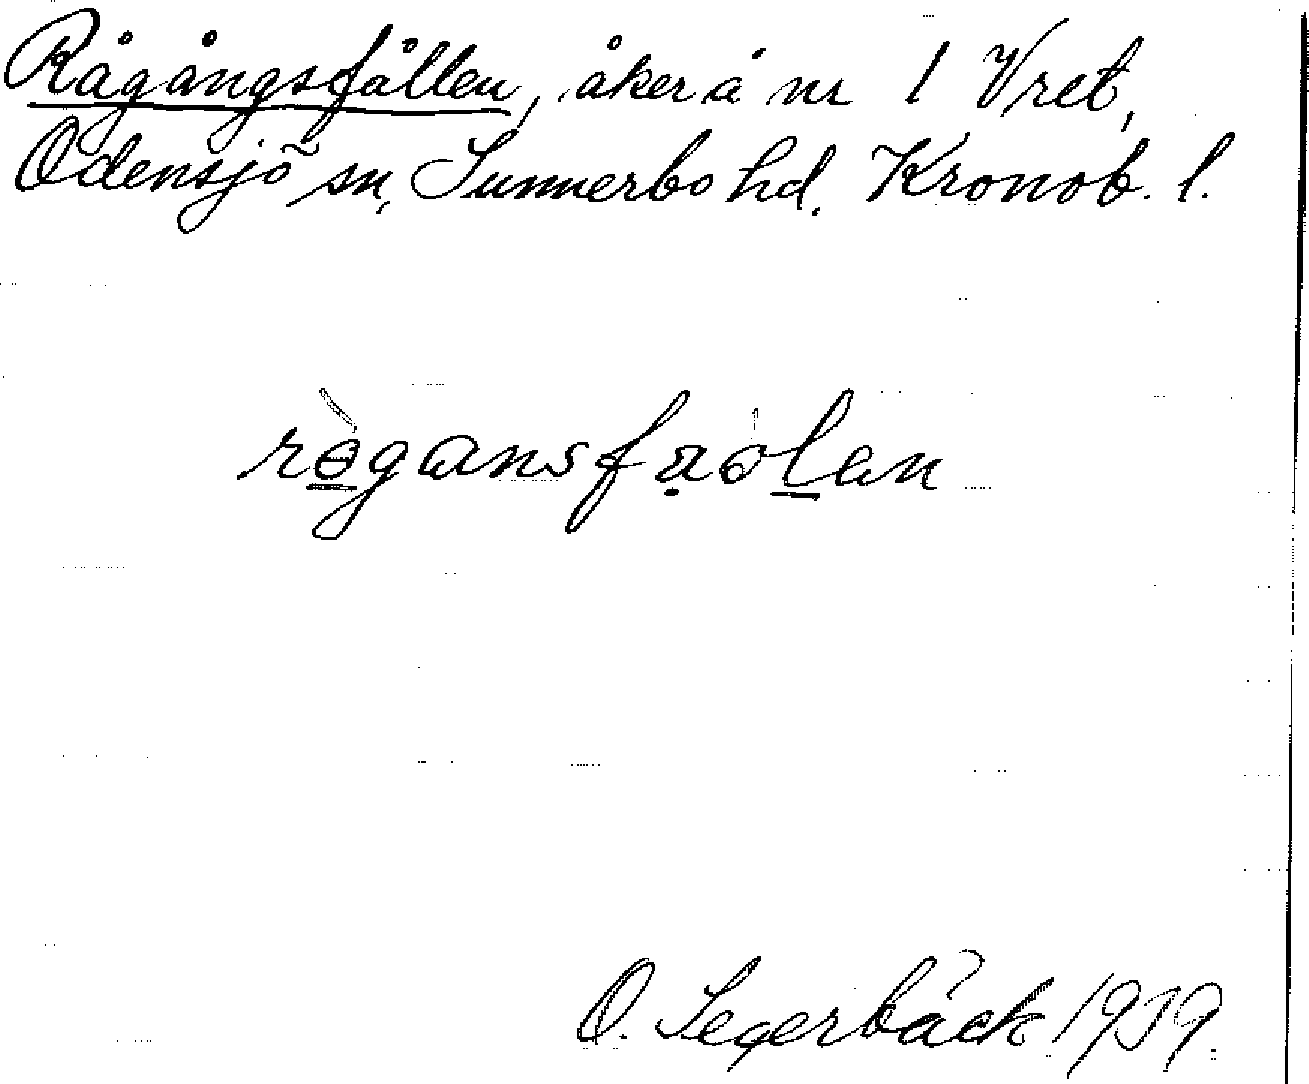 Rågångsfållen, åker å nr 1 Vret,
Odensjö sn, Sunnerbo hd. Kronob. l.
rɵ̀gansfaolen
O. Segerbäck 1939.